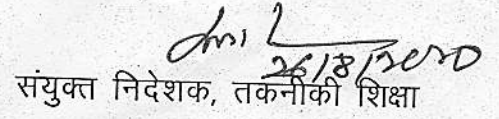 26/8/2020
संयुक्त निदेशक, तकनीकी शिक्षा